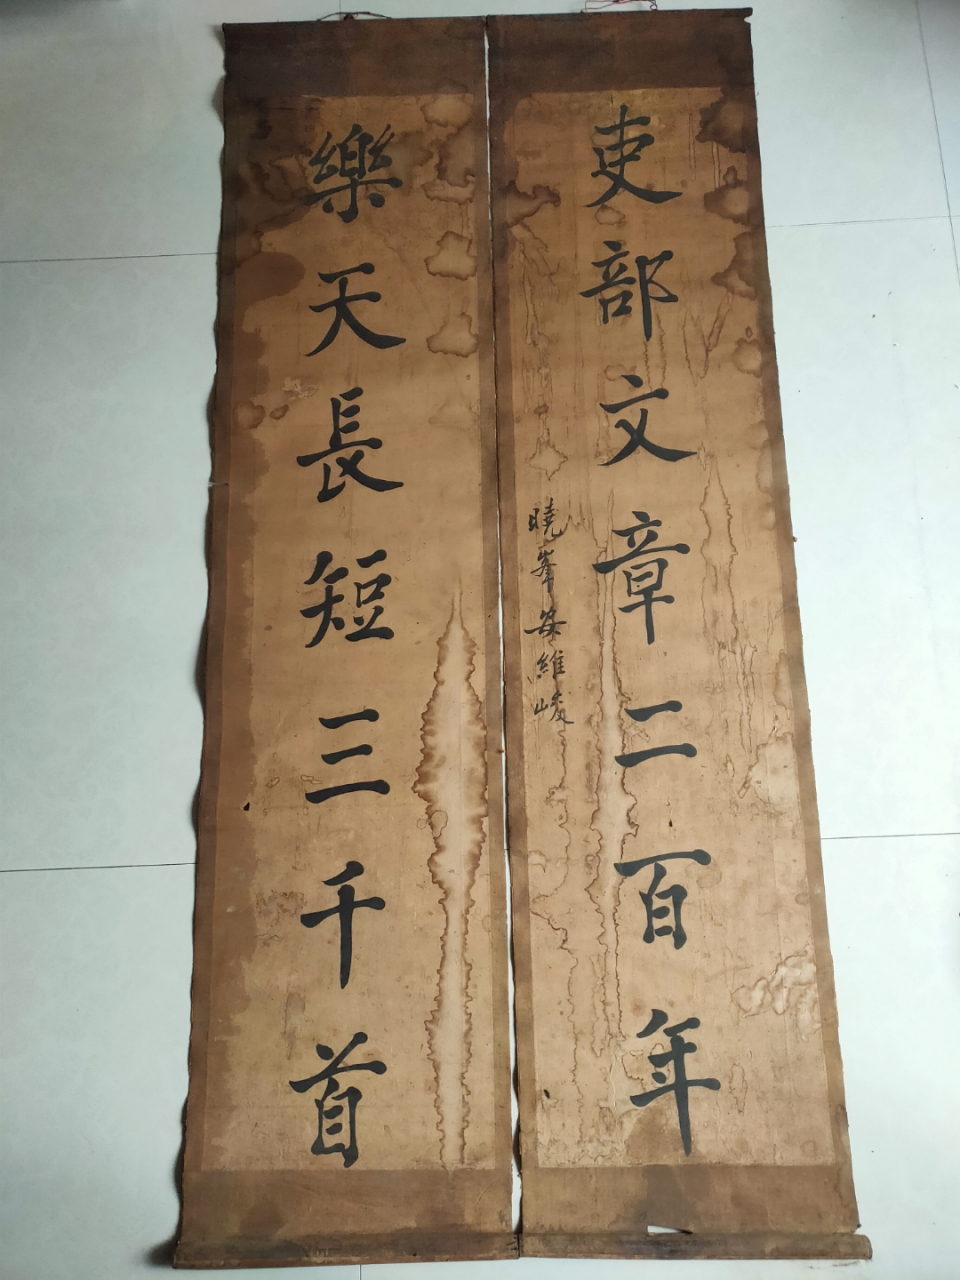 吏部文章二百年
曉峯安維峻
樂天長短三千首